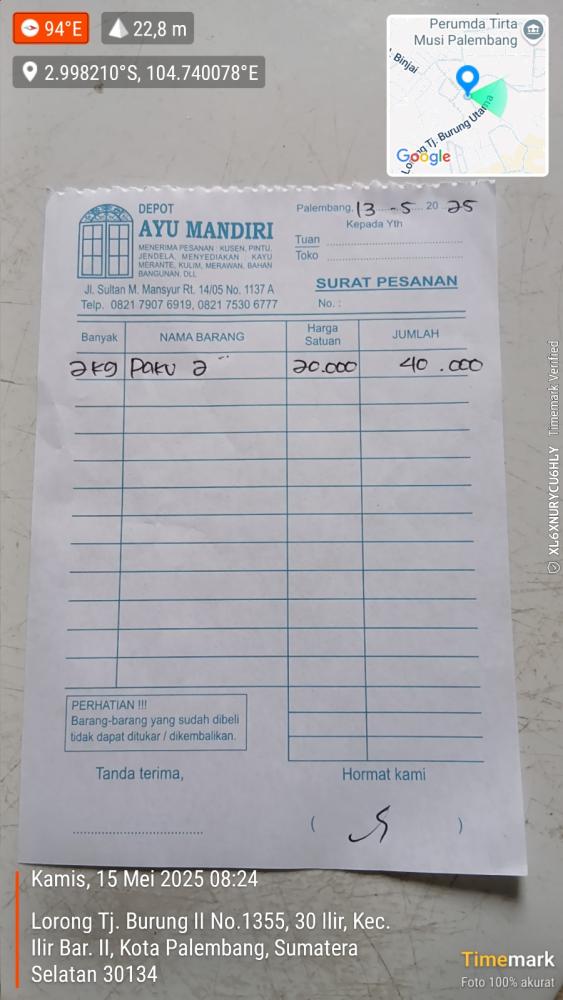 94°E
22,8 m
2.998210°S, 104.740078°E
Perumda Tirta
Musi Palembang
. Binjai
Lorong Tj. Burung Utama
Google
DEPOT
AYU MANDIRI
MENERIMA PESANAN : KUSEN, PINTU,
JENDELA, MENYEDIAKAN : KAYU
MERANTE, KULIM, MERAWAN, BAHAN
BANGUNAN, DLL
Jl. Sultan M. Mansyur Rt. 14/05 No. 1137 A
Telp. 0821 7907 6919, 0821 7530 6777
Palembang, 13 - 5 20 25
Kepada Yth
Tuan
Toko
SURAT PESANAN
No. :
Banyak NAMA BARANG Harga Satuan JUMLAH
2 kg Paku 2" 20.000 40.000
PERHATIAN !!!
Barang-barang yang sudah dibeli
tidak dapat ditukar / dikembalikan.
Tanda terima, Hormat kami
( )
Kamis, 15 Mei 2025 08:24
Lorong Tj. Burung II No.1355, 30 Ilir, Kec.
Ilir Bar. II, Kota Palembang, Sumatera
Selatan 30134
Timemark
Foto 100% akurat
XL6XNURYCU6HLY Timemark Verified